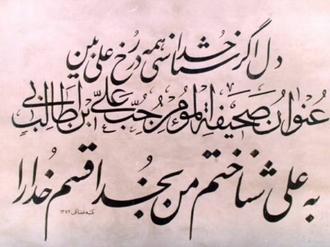 دل اگر خداشناسی همه در رخ علی بین
عنوان صحیفة المؤمن حب علی بن ابی طالب
به علی شناختم من بخدا قسم خدا را